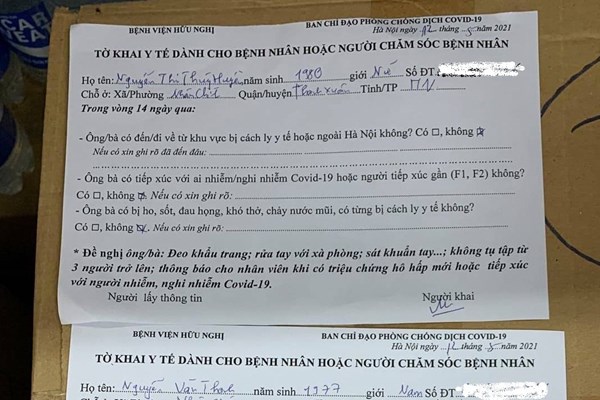 BỆNH VIỆN HỮU NGHỊ BAN CHỈ ĐẠO PHÒNG CHỐNG DỊCH COVID-19
Hà Nội ngày 12 tháng 5 năm 2021
TỜ KHAI Y TẾ DÀNH CHO BỆNH NHÂN HOẶC NGƯỜI CHĂM SÓC BỆNH NHÂN
Họ tên: Nguyễn Thị Thúy năm sinh 1980 giới Nữ Số ĐT
Chỗ ở: Xã/Phường Nhân Chính Quận/huyện Thanh Xuân Tỉnh/TP HN
Trong vòng 14 ngày qua:
- Ông/bà có đến/đi về từ khu vực bị cách ly y tế hoặc ngoài Hà Nội không? Có □, không ☒
Nếu có xin ghi rõ đã đến đâu:
- Ông bà có tiếp xúc với ai nhiễm/nghi nhiễm Covid-19 hoặc người tiếp xúc gần (F1, F2) không?
Có □, không ☒ Nếu có xin ghi rõ:
- Ông bà có bị ho, sốt, đau họng, khó thở, chảy nước mũi, có từng bị cách ly y tế không?
Có □, không ☒. Nếu có xin ghi rõ:
* Đề nghị ông/bà: Đeo khẩu trang; rửa tay với xà phòng; sát khuẩn tay...; không tụ tập từ
3 người trở lên; thông báo cho nhân viên khi có triệu chứng hô hấp mới hoặc tiếp xúc
với người nhiễm, nghi nhiễm Covid-19.
Người lấy thông tin Người khai
BỆNH VIỆN HỮU NGHỊ BAN CHỈ ĐẠO PHÒNG CHỐNG DỊCH COVID-19
Hà Nội ngày 12 tháng 5 năm 2021
TỜ KHAI Y TẾ DÀNH CHO BỆNH NHÂN HOẶC NGƯỜI CHĂM SÓC BỆNH NHÂN
Họ tên: Nguyễn Văn năm sinh 1977 giới Nam Số ĐT